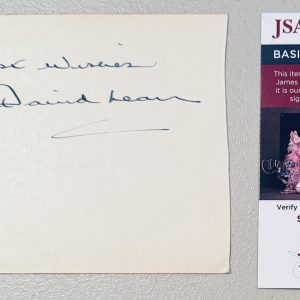 st Wishes
David Lean
JSA
BASI
This ite
James
it is ou
sig
Verify
S